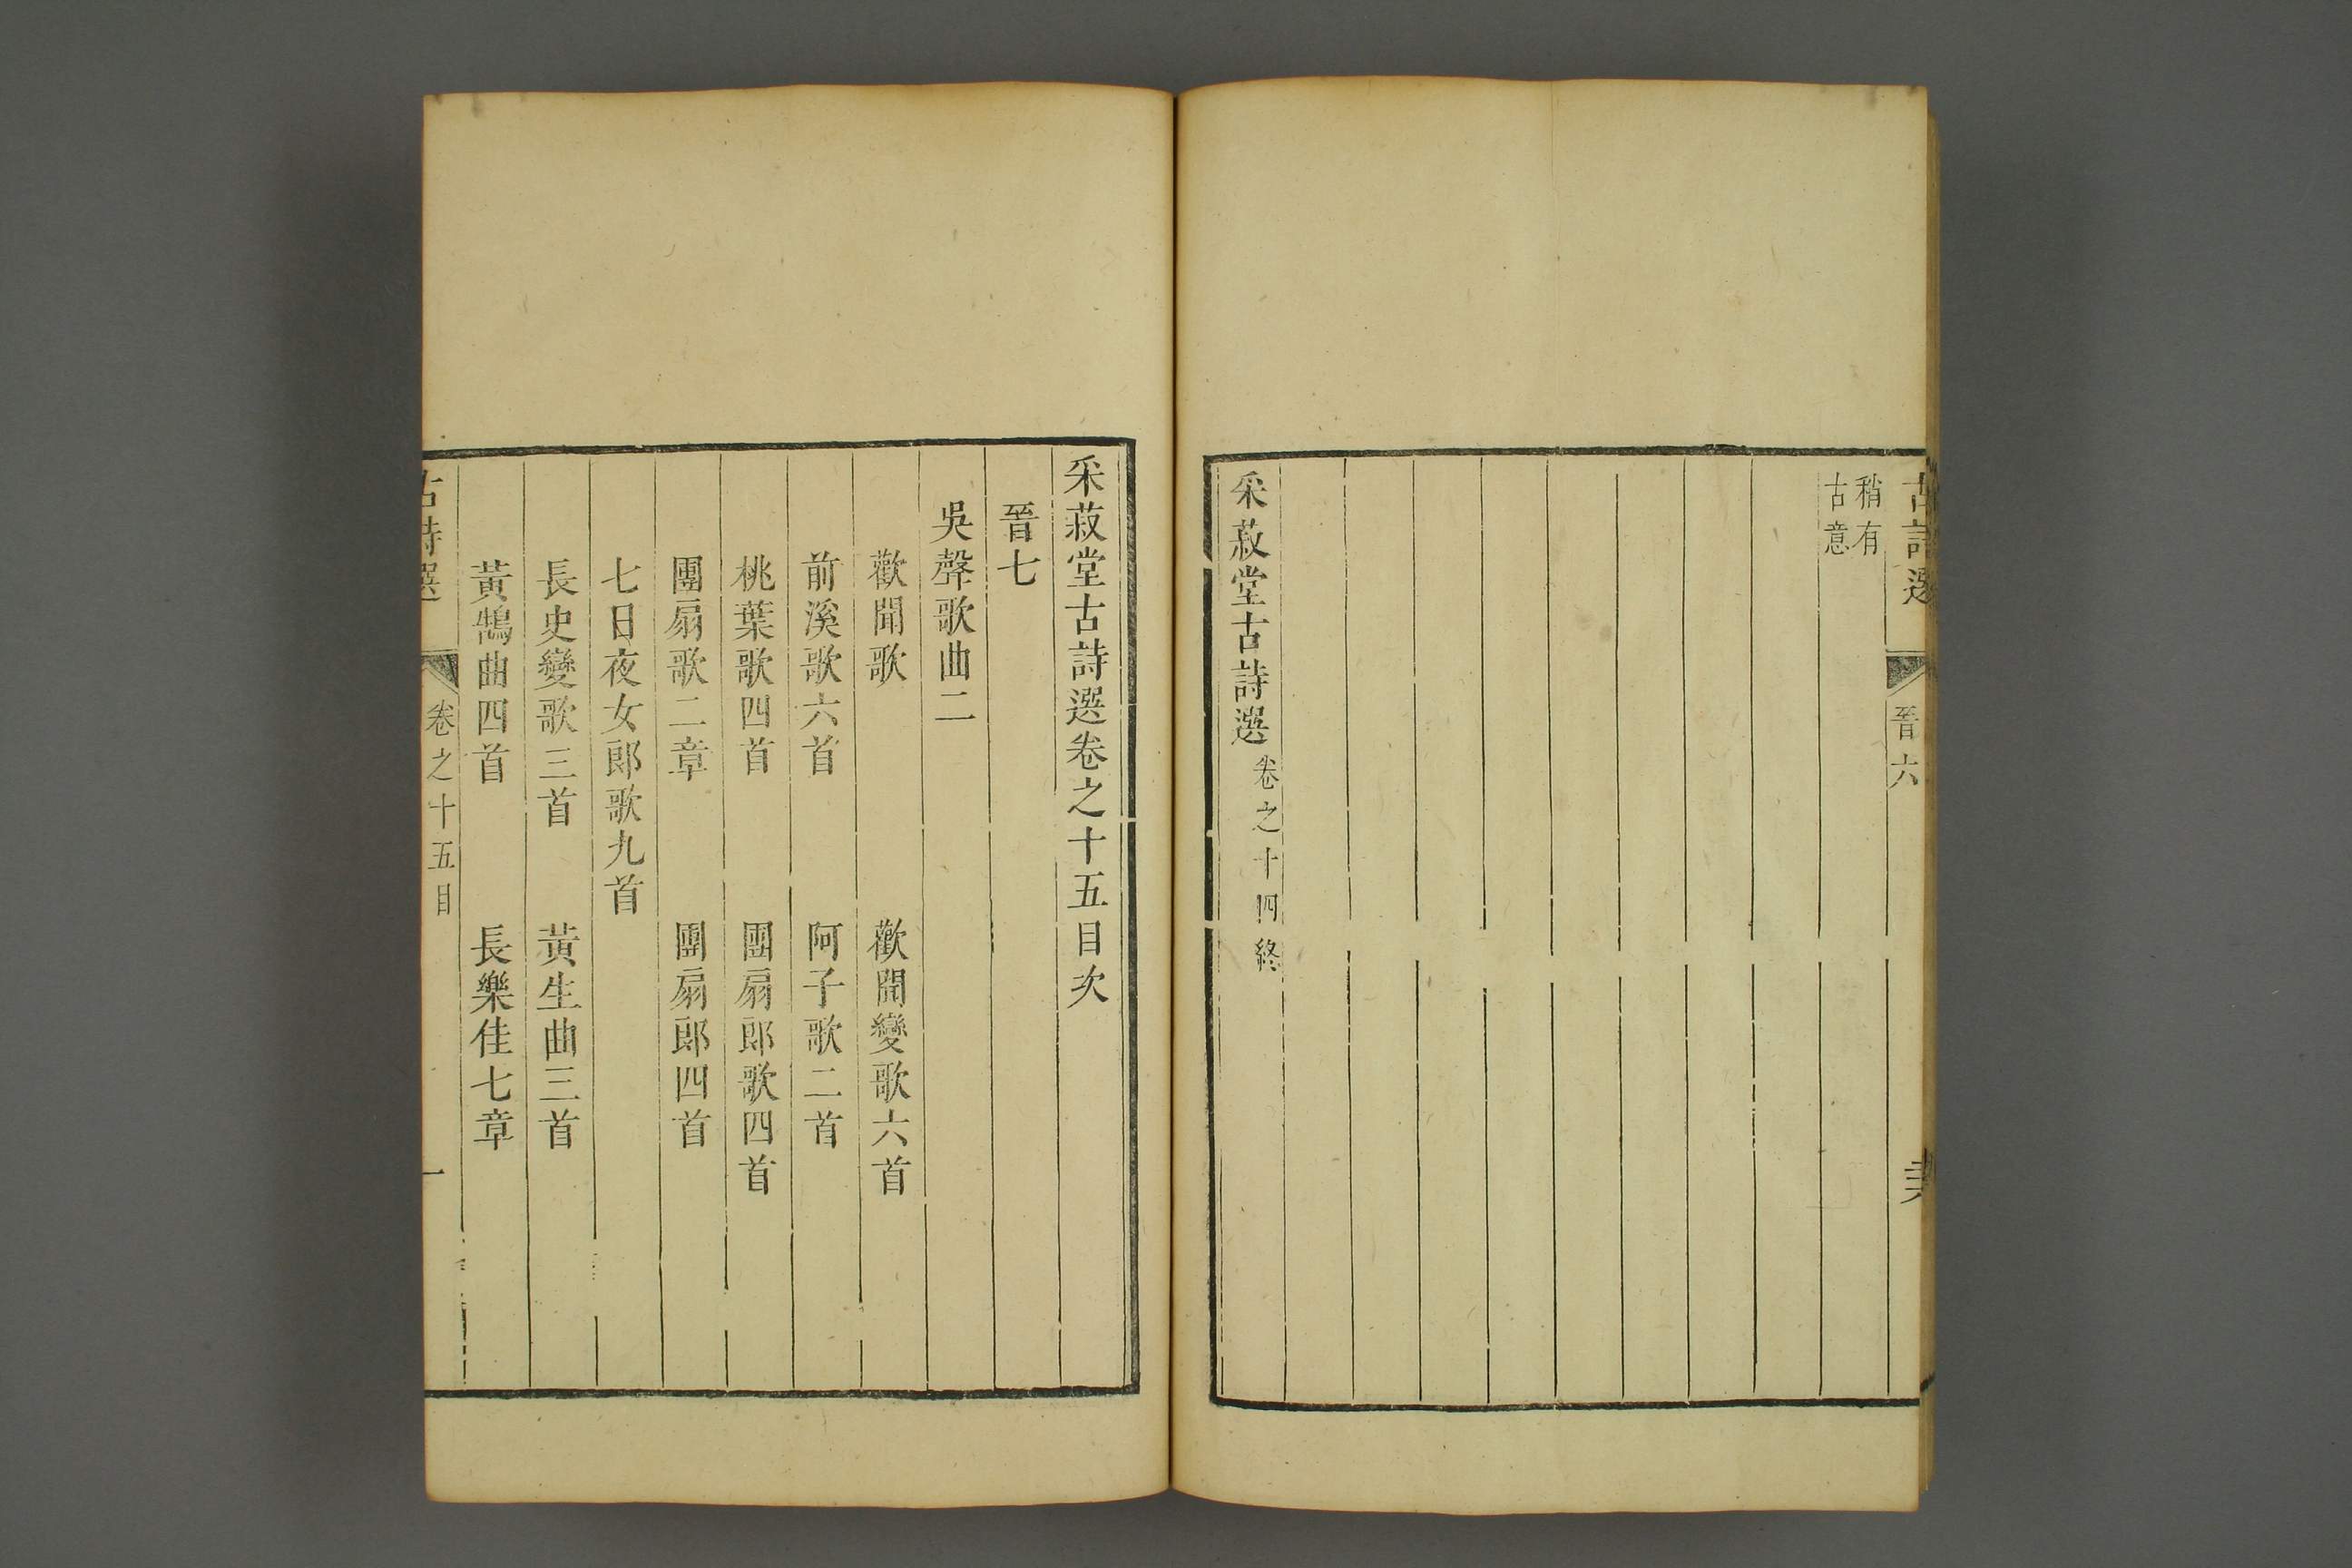 古詩選
晉六
稍有
古意
采菽堂古詩選卷之十四終
采菽堂古詩選卷之十五目次
晉七
吳聲歌曲二
歡聞歌　歡聞變歌六首
前溪歌六首　阿子歌二首
桃葉歌四首　團扇郎歌四首
團扇歌二章　團扇郎四首
七日夜女郎歌九首
長史變歌三首　黃生曲三首
黃鵠曲四首　長樂佳七章
古詩選
卷之十五目
一